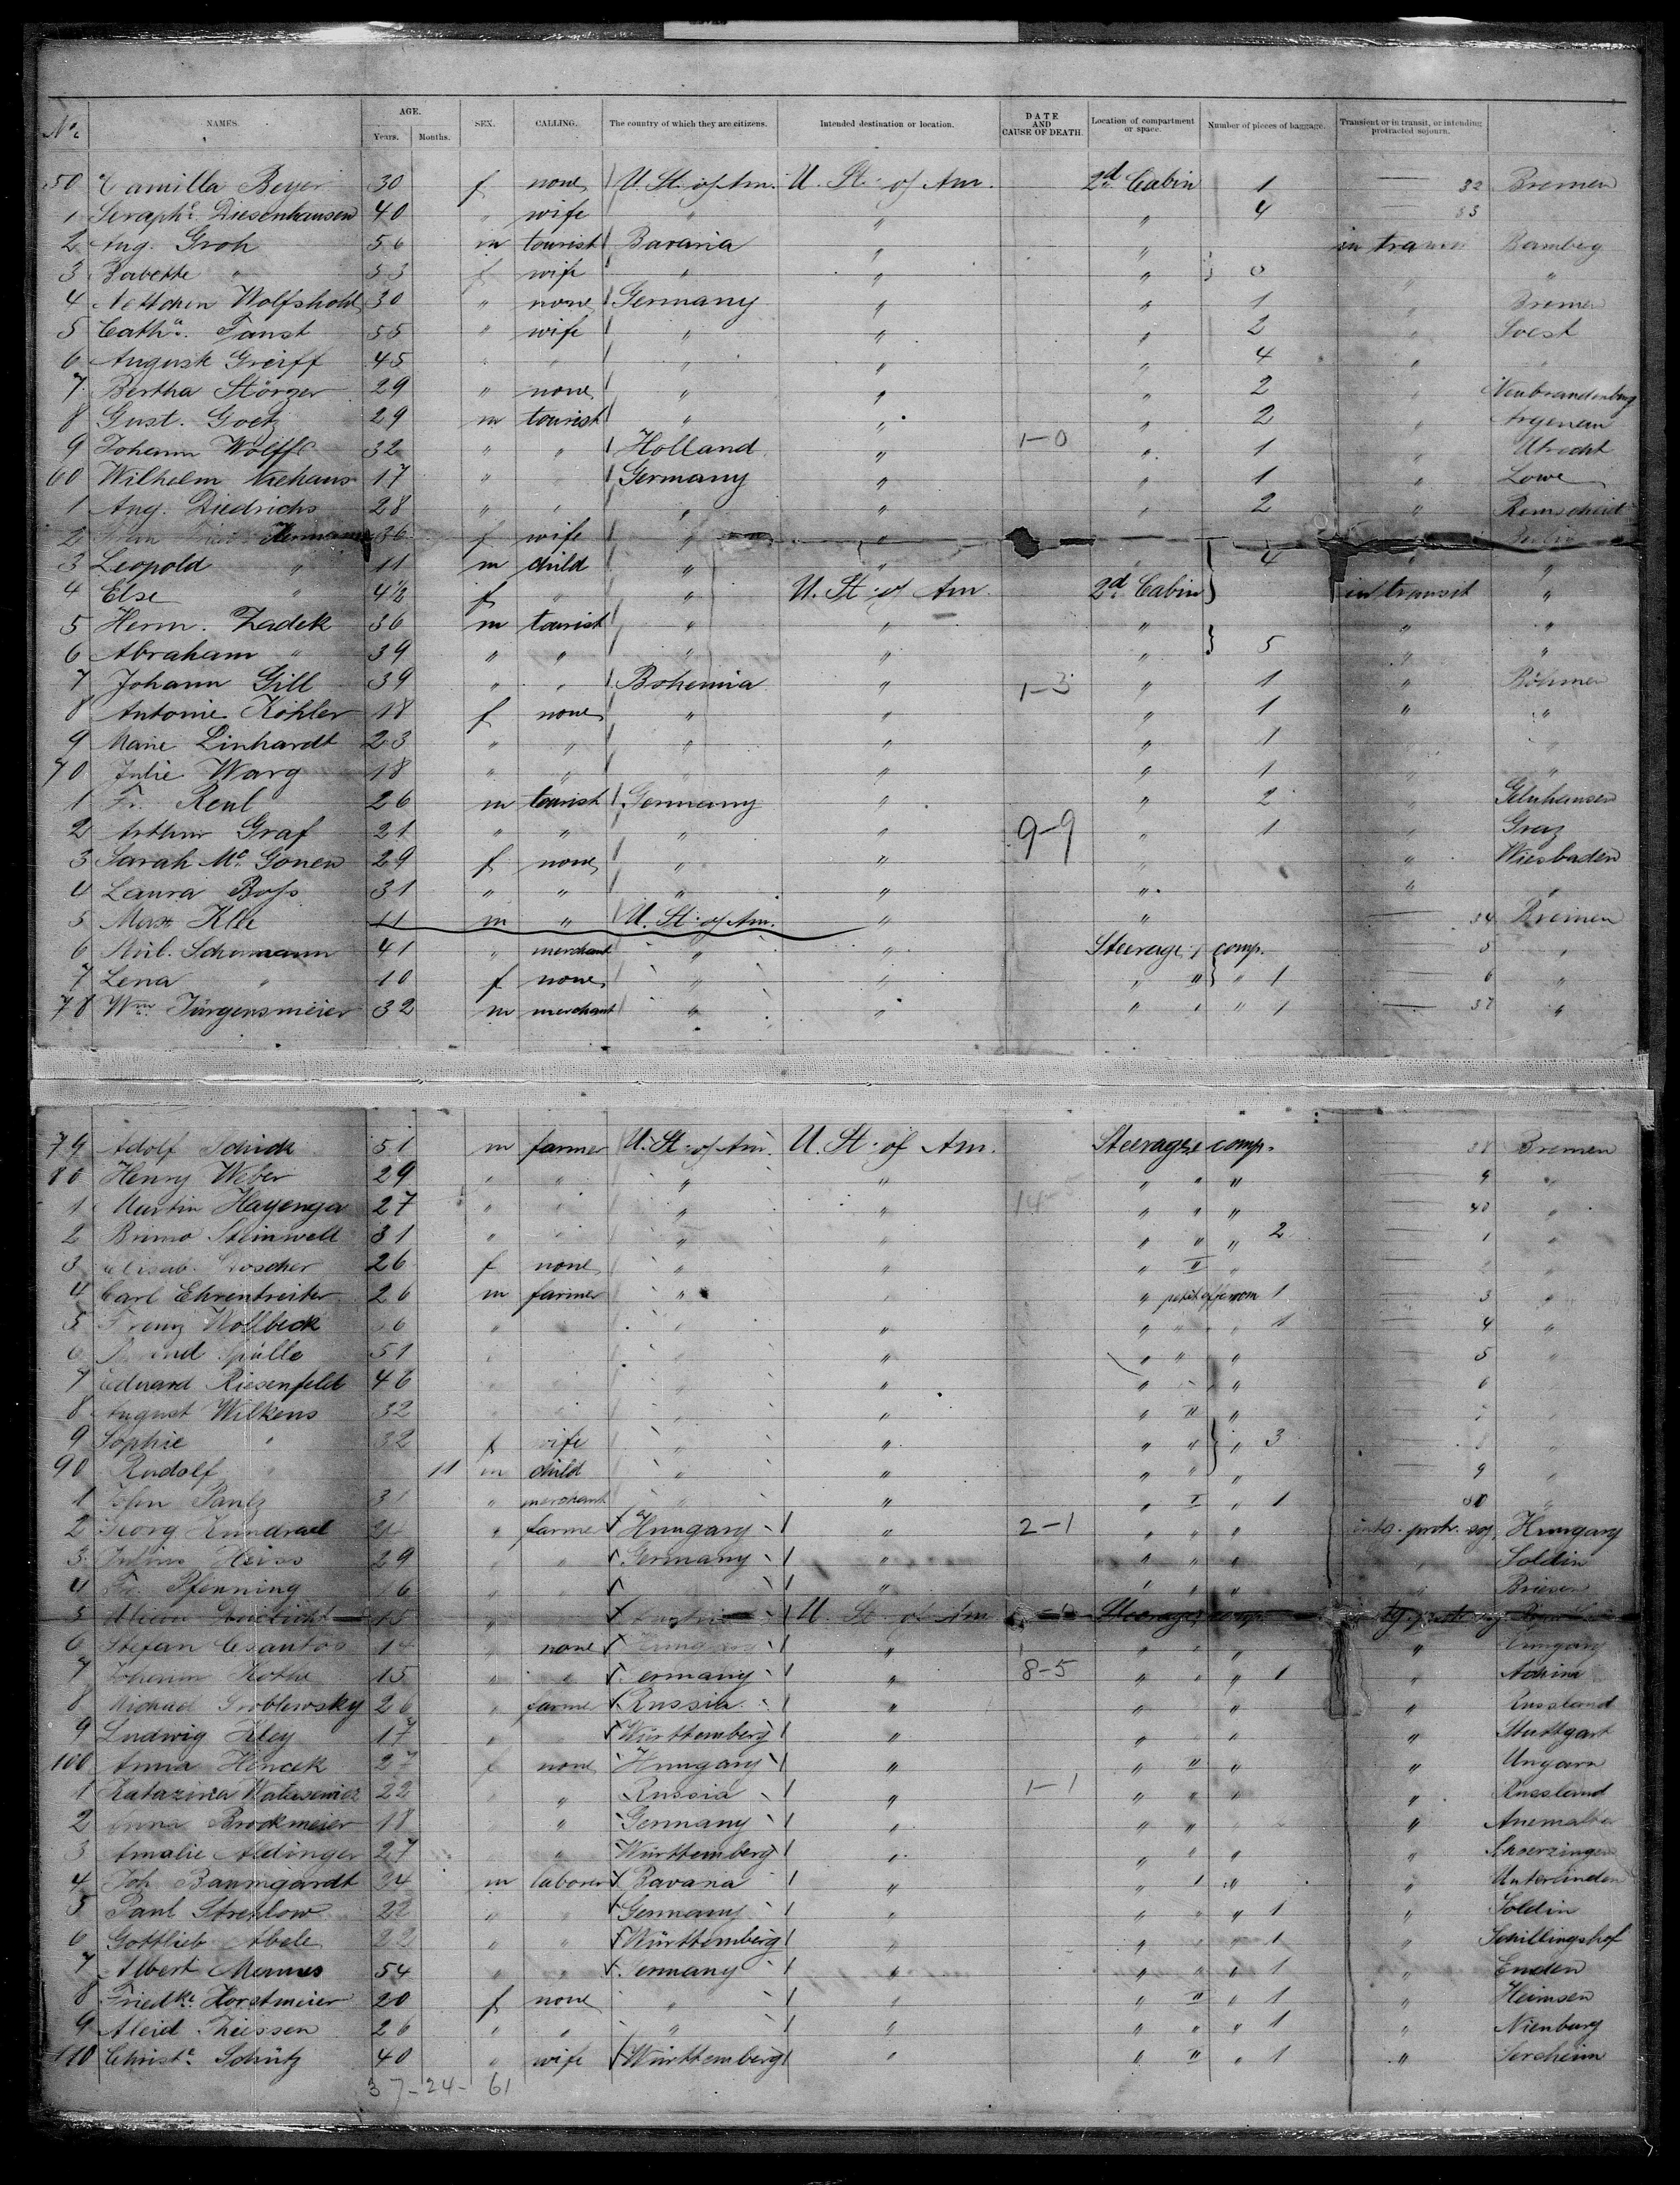 No. NAMES. AGE. Years. Months. SEX. CALLING. The country of which they are citizens. Intended destination or location. DATE AND CAUSE OF DEATH. Location of compartment or space. Number of pieces of baggage. Transient or in transit, or intending protracted sojourn.
50 Camilla Beyer 30 f none U. St. of Am. U. St. of Am. 2d Cabin 1 — 32 Bremen
1 Seraphe Diesenhausen 40 " wife " " " 4 — 33
2 Aug. Groh 56 m tourist Bavaria " " in Bamberg
3 Babette " 53 f wife " " " } 0 " "
4 Nettchen Wolfshohl 30 " none Germany " " 1 " Bremen
5 Catha. Faust 55 " wife " " " 2 " Soest
6 August Greiff 45 " " " " " 4 " "
7 Bertha Störzer 29 " none " " " 2 " Neubrandenburg
8 Gust. Goetz 29 m tourist " " " 2 " Argenau
9 Johann Wolff 32 " " Holland " 1-0 " 1 " Utrecht
60 Wilhelm Niehaus 17 " " Germany " " 1 " Lowe
1 Aug. Diedrichs 28 " " " " " 2 " Remscheid
2 Hermann 36 f wife " "
3 Leopold " 11 m child " " 4 " "
4 Else " 4½ f " " U. St. of Am. 2d Cabin } in transit "
5 Herm. Zadek 36 m tourist " " " " "
6 Abraham " 39 " " " " " } 5 " "
7 Johann Gill 39 " " Bohemia " 1-3 " 1 " Böhmen
8 Antonie Köhler 18 f none " " " 1 " "
9 Marie Linhardt 23 " " " " " 1 " "
70 Julie Warg 18 " " " " " 1 " "
1 Fr. Reul 26 m tourist Germany " " 2 " Gelnhausen
2 Arthur Graf 21 " " " " 9-9 " 1 " Graz
3 Sarah Mc Gonen 29 f none " " " " Wiesbaden
4 Laura Boss 31 " " " " " " "
5 Max Klee 11 m " U. St. of Am. " " — 34 Bremen
6 Schumann 41 " merchant " " Steerage, comp. — 5 "
7 Lena " 10 f none " " " " } " 1 — 6 "
78 Wm. Jürgensmeier 32 m merchant " " " " " 1 — 37 "
79 Adolf Schick 51 m farmer U. St. of Am. U. St. of Am. Steerage comp. 38 Bremen
80 Henry Weber 29 " " " " " " " — 9 "
1 Martin Hayenga 27 " " " " " " " — 40 "
2 Bruno Steinwell 31 " " " " " " " 2 — 1 "
3 26 f none " " " II " — "
4 Carl Ehrentreiter 26 m farmer " " " 1 — 3 "
5 Franz Kollbeck " " " " " " " 1 — 4 "
6 51 " " " " " " " — 5 "
7 Eduard Riesenfeld 46 " " " " " " " — 6 "
8 August Wilkens 32 " " " " " II " — "
9 Sophie " 32 f wife " " " " } " 3 — "
90 Rudolf " 11 m child " " " " " — 9 "
1 John Pantz 31 " merchant " " " I " 1 — 50 "
2 Georg " farmer Hungary " 2-1 " " " Hungary
3 Julius Heiss 29 " " Germany " " " " " Soldin
4 Fr. Pfenning 16 " " " " " " " " Briesen
5 15 " U. St. of Am.
6 Stefan Csantos 14 " none Hungary " " " " " Hungary
7 Johann Kothe 15 " " ermany " 8-5 " " " 1 " Achim
8 Michael Groblewsky 26 " farmer Russia " " " " " Russland
9 Ludwig Kley 17 " " Württemberg " " " " " Stuttgart
100 Anna Hencek 27 f none Hungary " " " " " Ungarn
1 Katazina 22 " " Russia " 1-1 " " " " Russland
2 Anna Brockmeier 18 " " Germany " " " " "
3 Amalie Aldinger 27 " " Württemberg " " " " "
4 Joh. Baumgardt 24 m laborer Bavaria " " " " " Unterlinden
5 Paul Strehlow 22 " " Germany " " " " 1 " Soldin
6 Gottlieb Abele 22 " " Württemberg " " " " 1 " Schillingshof
7 Albert Mennes 54 " " ermany " " " " 1 " Emden
8 Friedke. Horstmeier 20 f none " " " II " 1 " Heimsen
9 Aleid Ziessen 26 " " " " " " " 1 " Nienburg
110 Christe Schütz 40 " wife Württemberg " " II " 1 " Sersheim
37-24-61